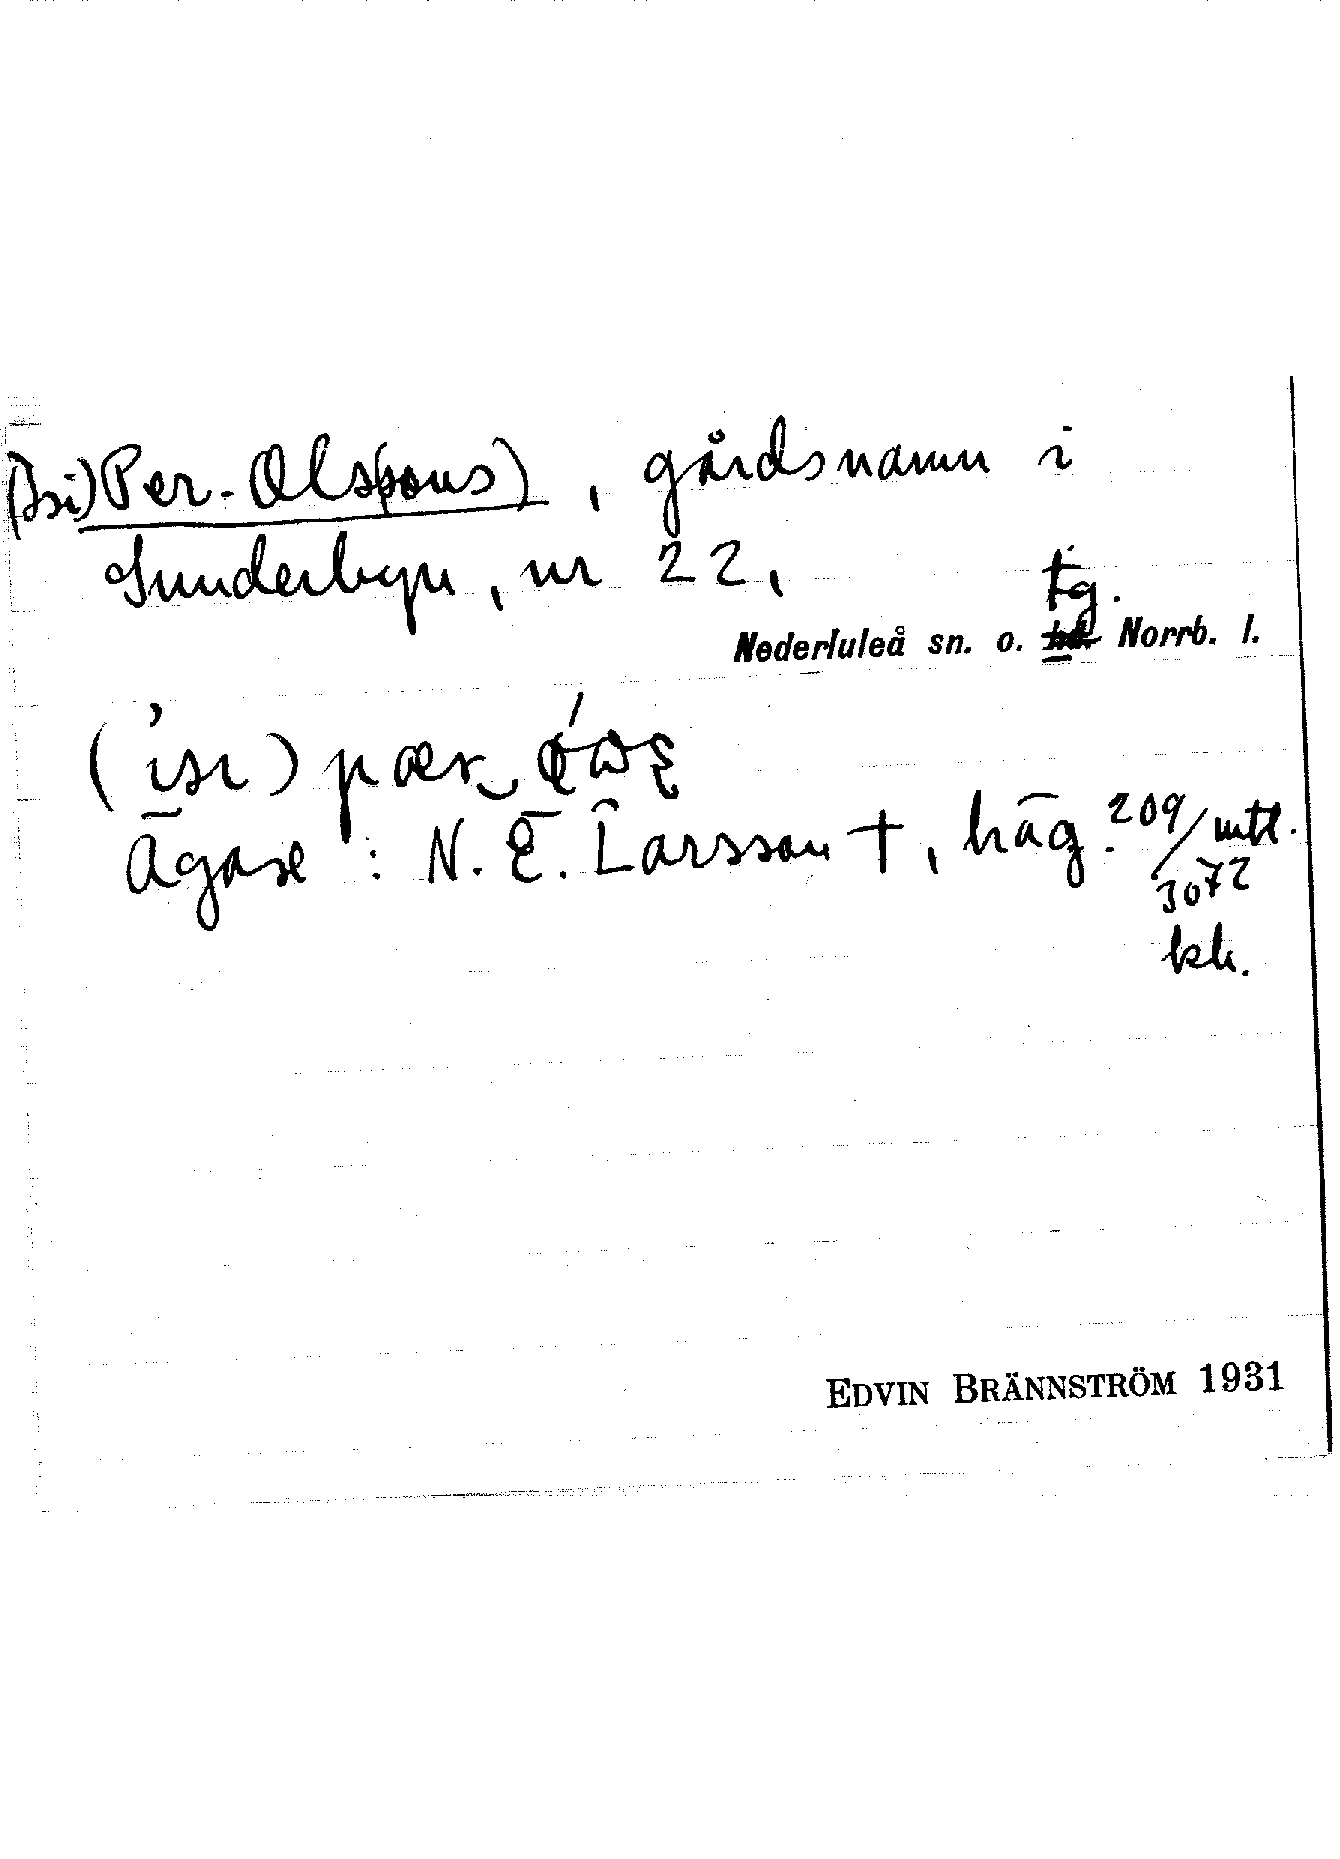 (Isi) Per-Ols(sons), gårdsnamn i
Sunderbyn, nr 22,
tg.
Nederluleå sn. o. hd. Norrb. l.
( isı ) pær
Ägare : N. E. Larsson †, häg. 209/3072 mtl.
kh.
EDVIN BRÄNNSTRÖM 1931